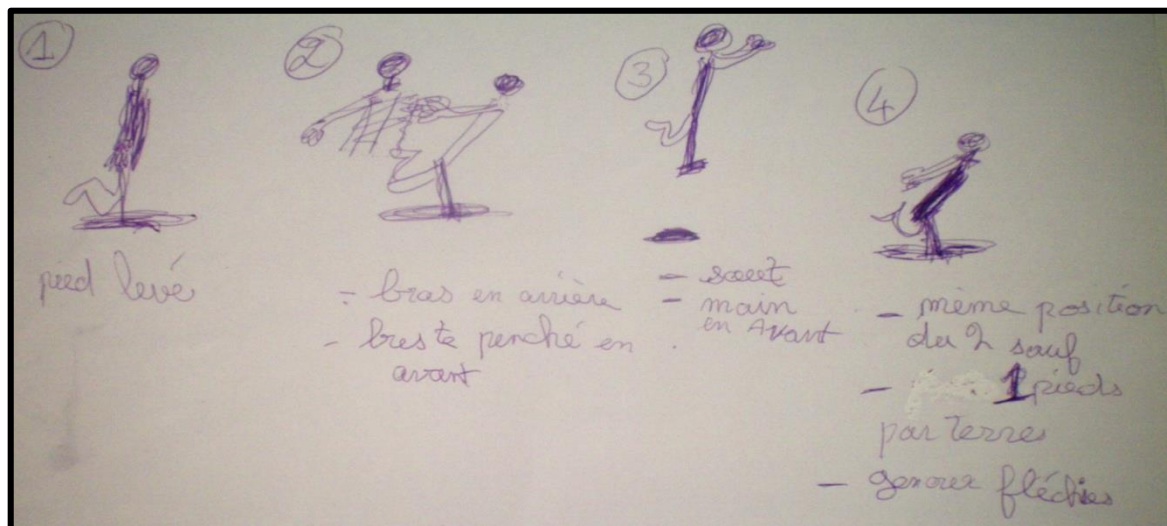 1
pied levé
2
- bras en arrière
- buste penché en
avant
3
- saut
- main
en Avant
4
- même position
du 2 sauf
- 1 pieds
par terres
- genoux fléchies